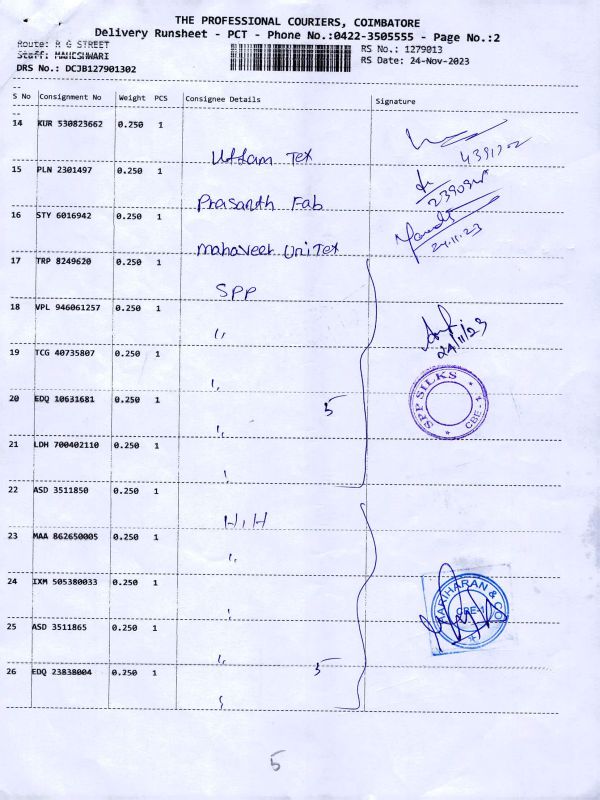 THE PROFESSIONAL COURIERS, COIMBATORE
Delivery Runsheet - PCT - Phone No.:0422-3505555 - Page No.:2
Route: R G STREET
Staff: MAHESHWARI
DRS No.: DCJB127901302
RS No.: 1279013
RS Date: 24-Nov-2023
S No Consignment No Weight PCS Consignee Details Signature
14 KUR 530823662 0.250 1
Uttam Tex
15 PLN 2301497 0.250 1
Prasanth Fab
16 STY 6016942 0.250 1
24.11.23
Mahaveer Unitex
17 TRP 8249620 0.250 1
SPP
18 VPL 946061257 0.250 1
24/11/23
"
19 TCG 40735807 0.250 1
"
SPP SILKS
CBE - 1
20 EDQ 10631681 0.250 1
5
"
21 LDH 700402110 0.250 1
"
22 ASD 3511850 0.250 1
H,H
23 MAA 862650005 0.250 1
"
24 IXM 505380033 0.250 1
HARIHARAN & CO
CBE-1
"
25 ASD 3511865 0.250 1
"
5
26 EDQ 23838004 0.250 1
"
5